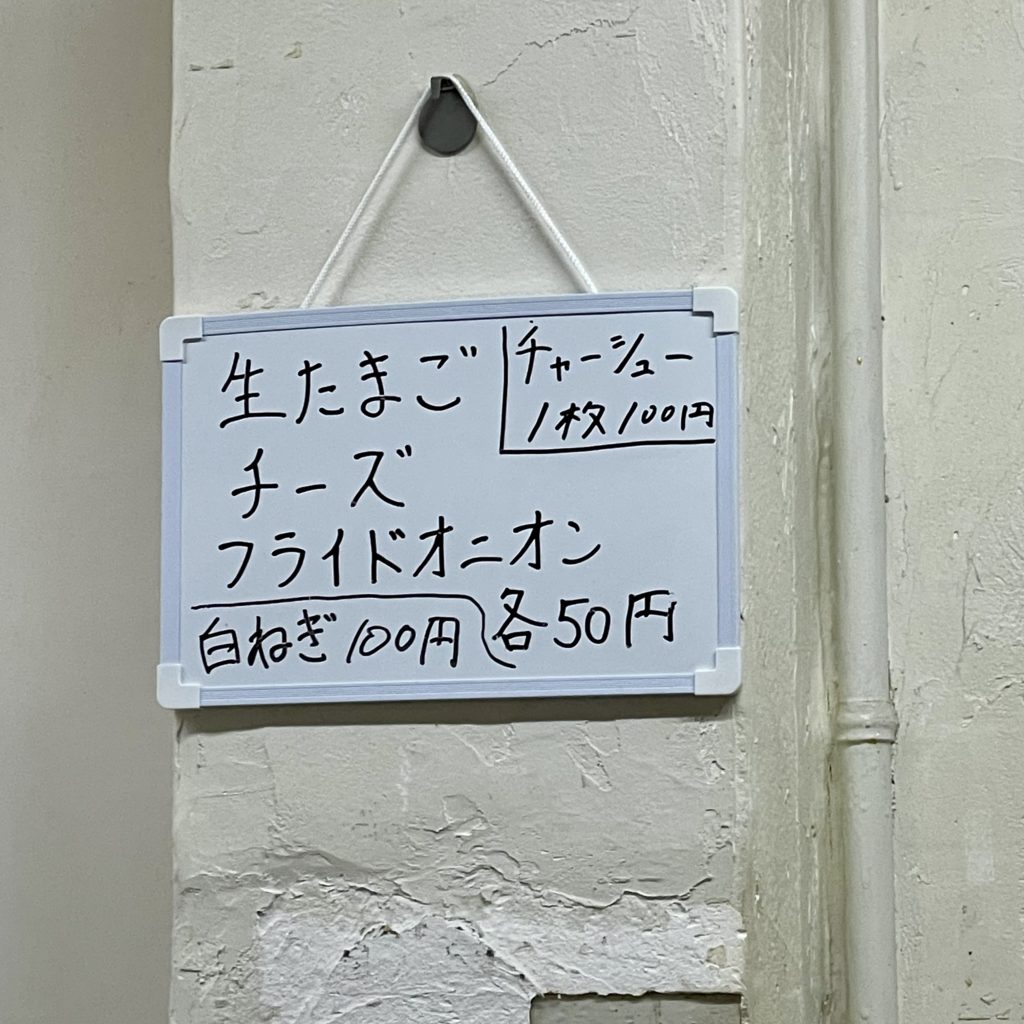 生たまご
チャーシュー
1枚100円
チーズ
フライドオニオン
各50円
白ねぎ100円